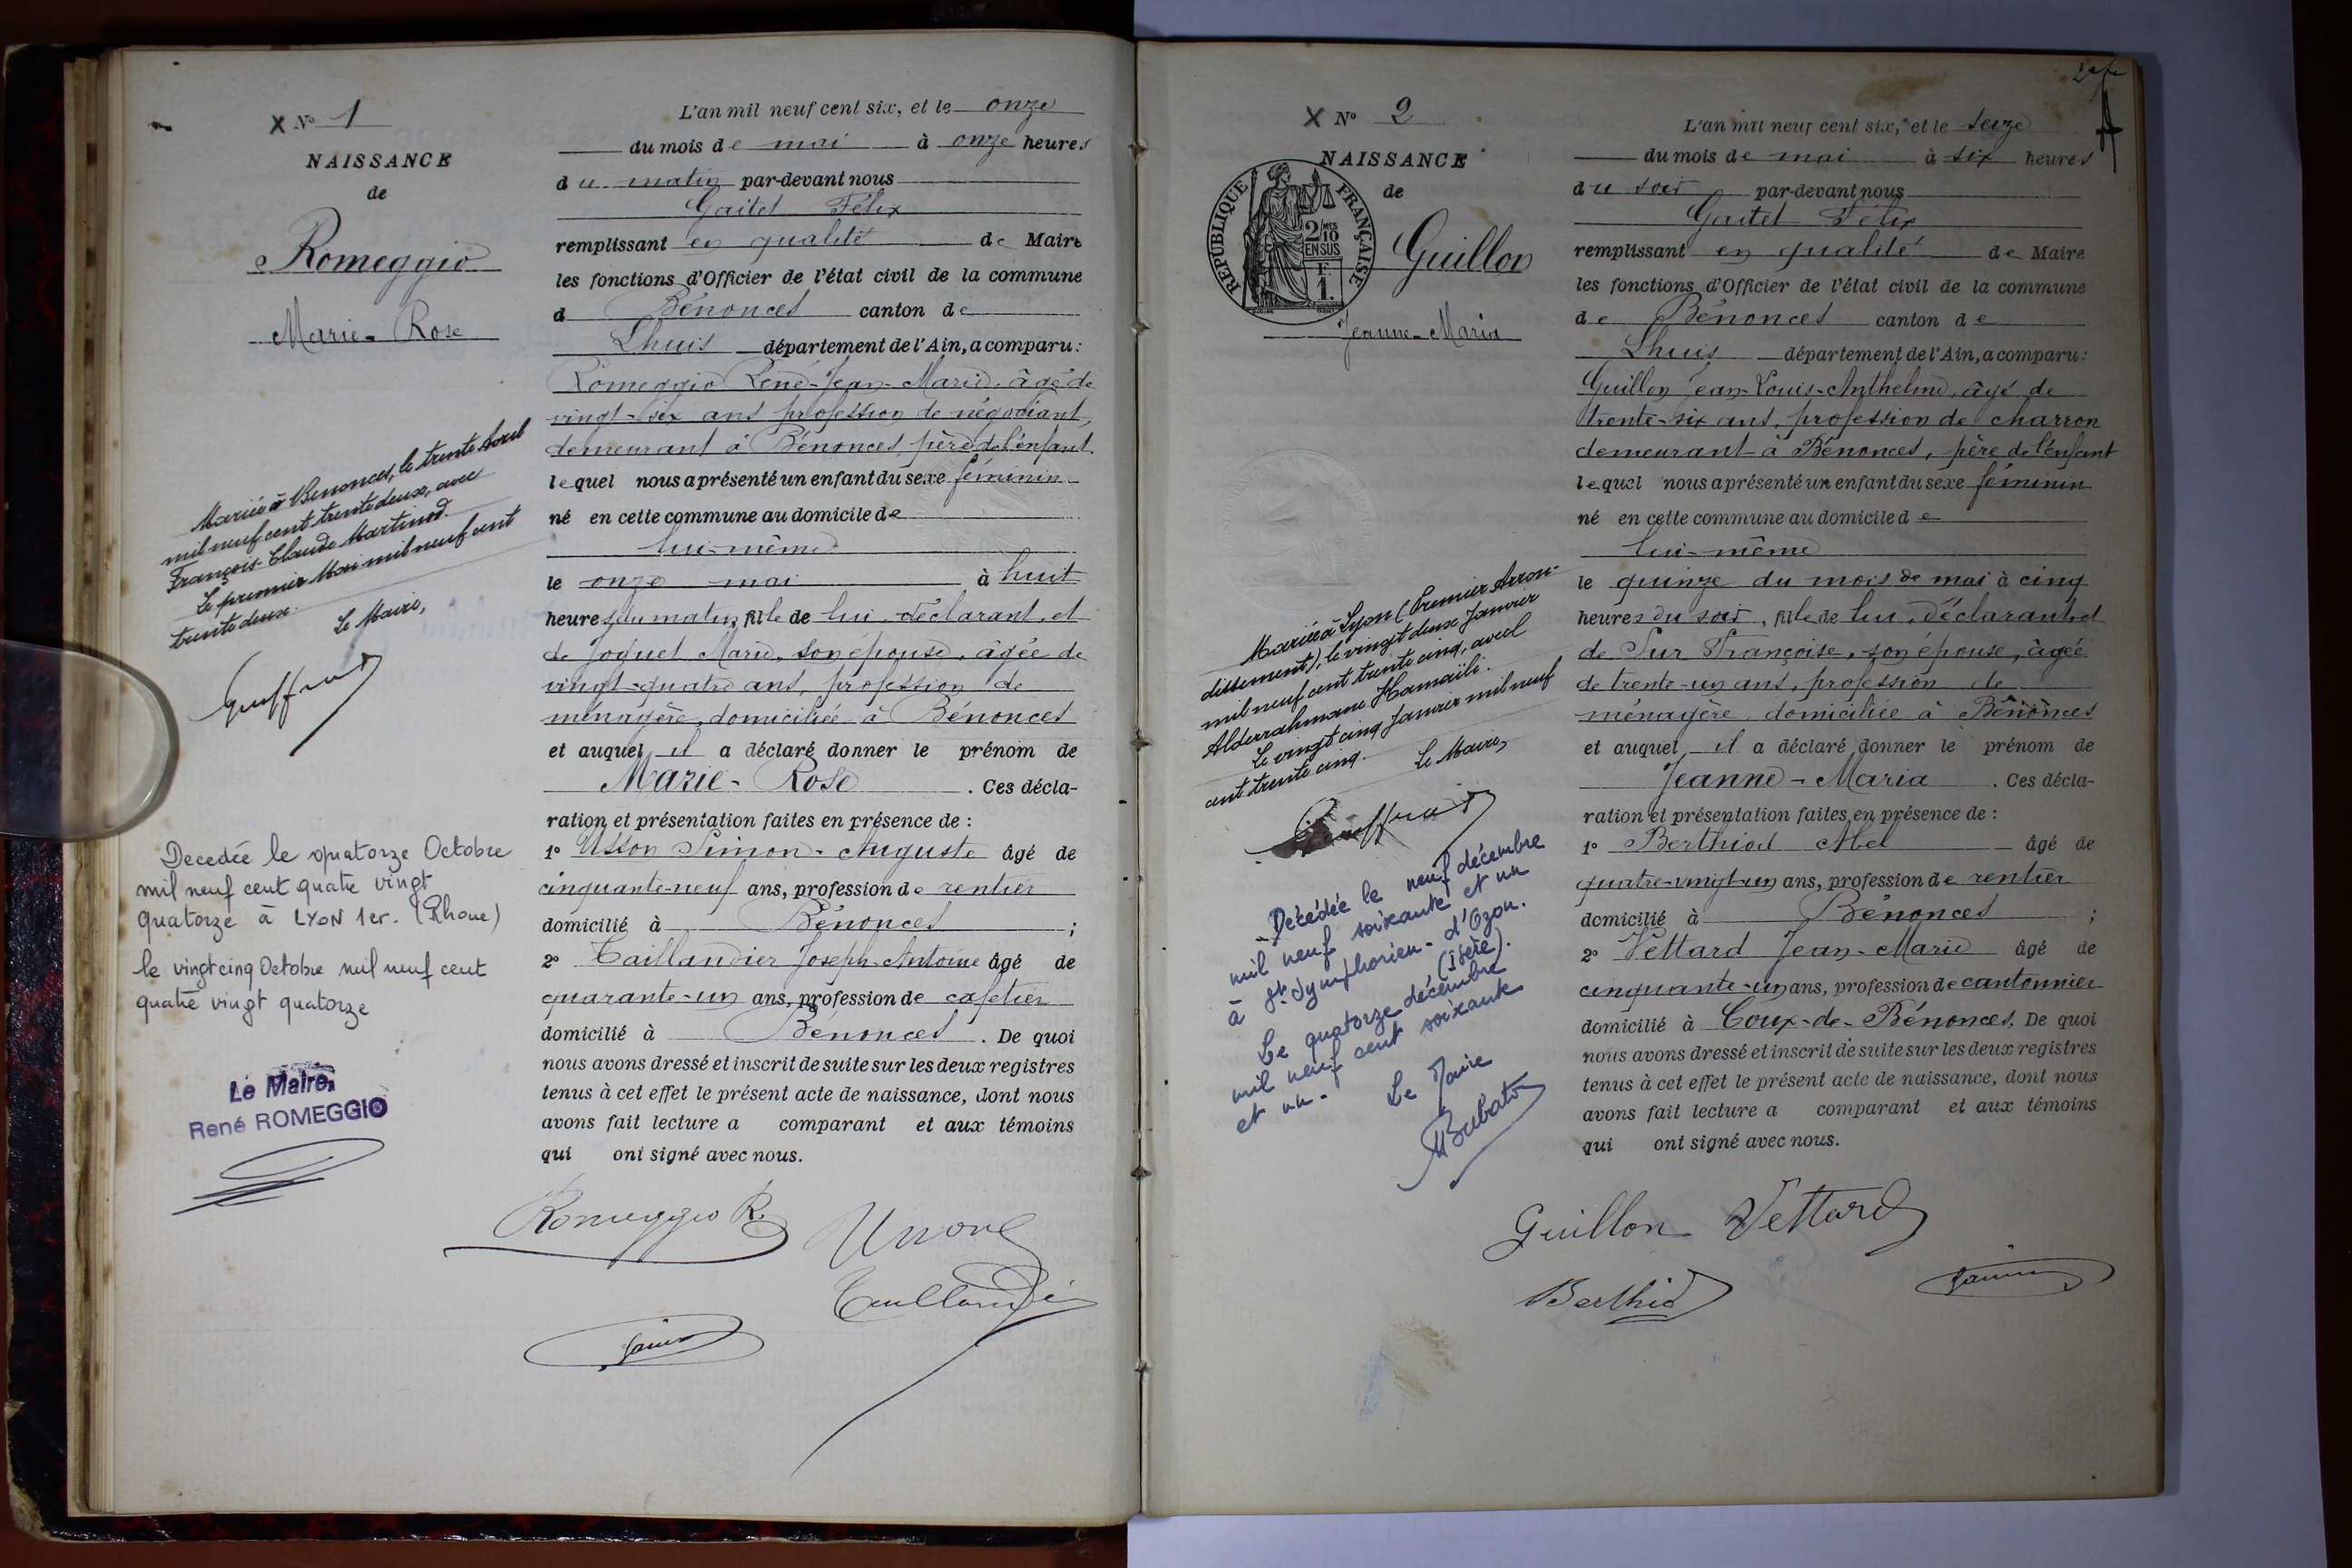 X Nº 1
NAISSANCE
de
Romeggio
Marie-Rose
Mariée à Benonces, le trente Avril
mil neuf cent trente deux, avec
François-Claude Martinod.
Le premier Mai mil neuf cent
trente deux.
Le Maire,
Decedée le quatorze Octobre
mil neuf cent quatre vingt
quatorze à LYON 1er. (Rhone)
le vingt cinq Octobre mil neuf cent
quatre vingt quatorze
Le Maire,
René ROMEGGIO
L'an mil neuf cent six, et le onze
du mois de mai à onze heures
du matin par-devant nous
Gaitet Félix
remplissant en qualité de Maire
les fonctions d'Officier de l'état civil de la commune
d Bénonces canton de
Lhuis département de l'Ain, a comparu:
Romeggio René-Jean-Marie, âgé de
vingt-six ans profession de négociant,
demeurant à Bénonces, père de l'enfant.
lequel nous a présenté un enfant du sexe féminin
né en cette commune au domicile de
lui-même
le onze mai à huit
heures du matin, fille de lui, déclarant, et
de Joguet Marie, son épouse, âgée de
vingt-quatre ans, profession de
ménagère, domiciliée à Bénonces
et auquel il a déclaré donner le prénom de
Marie-Rose. Ces décla-
ration et présentation faites en présence de :
1º Usson Simon-Auguste âgé de
cinquante-neuf ans, profession de rentier
domicilié à Bénonces ;
2º Taillandier Joseph-Antoine âgé de
quarante-un ans, profession de cafetier
domicilié à Bénonces. De quoi
nous avons dressé et inscrit de suite sur les deux registres
tenus à cet effet le présent acte de naissance, dont nous
avons fait lecture a comparant et aux témoins
qui ont signé avec nous.
Romeggio R.
X Nº 2
NAISSANCE
de
REPUBLIQUE FRANÇAISE
2/10
EN SUS
F.
1.
Guillon
Jeanne-Maria
Mariée à Lyon (Premier Arron-
dissement), le vingt deux Janvier
mil neuf cent trente cinq, avec
Abderrahmane Hamaïli.
Le vingt cinq Janvier mil neuf
cent trente cinq.
Le Maire,
Décédée le neuf décembre
mil neuf soixante et un
à St. Symphorien-d'Ozon.
(Isère).
Le quatorze décembre
mil neuf cent soixante
et un.
Le Maire
L'an mil neuf cent six, et le seize
du mois de mai à six heures
du soir par-devant nous
Gaitet Félix
remplissant en qualité de Maire
les fonctions d'Officier de l'état civil de la commune
de Bénonces canton de
Lhuis département de l'Ain, a comparu:
Guillon Jean-Louis-Anthelme, âgé de
trente-six ans, profession de charron
demeurant à Bénonces, père de l'enfant
lequel nous a présenté un enfant du sexe féminin
né en cette commune au domicile de
lui-même
le quinze du mois de mai à cinq
heures du soir, fille de lui, déclarant, et
de Sur Françoise, son épouse, âgée
de trente-un ans, profession de
ménagère domiciliée à Bénonces
et auquel il a déclaré donner le prénom de
Jeanne-Maria. Ces décla-
ration et présentation faites en présence de :
1º Berthiod Abel âgé de
quatre-vingt-un ans, profession de rentier
domicilié à Bénonces ;
2º Vettard Jean-Marie âgé de
cinquante-un ans, profession de cantonnier
domicilié à Coux-de-Bénonces. De quoi
nous avons dressé et inscrit de suite sur les deux registres
tenus à cet effet le présent acte de naissance, dont nous
avons fait lecture a comparant et aux témoins
qui ont signé avec nous.
Guillon Vettard
Berthiod